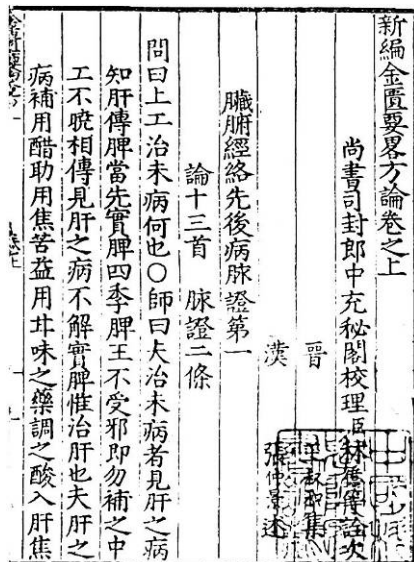 新編金匱要畧方論卷之上
尚書司封郎中充秘閣校理臣林億等詮次
晉 王叔和集
漢 張仲景述
臟腑經絡先後病脉證第一
論十三首 脉證二條
問曰上工治未病何也○師曰夫治未病者見肝之病
知肝傳脾當先實脾四季脾王不受邪即勿補之中
工不曉相傳見肝之病不解實脾惟治肝也夫肝之
病補用酸助用焦苦益用甘味之藥調之酸入肝焦